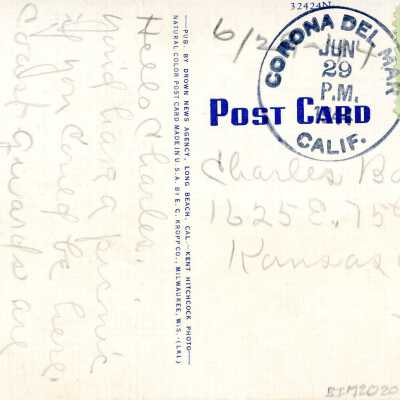 32424N
6/2
CORONA DEL MAR
JUN
29
P.M.
CALIF.
POST CARD
Charles
1625 E. 75
Kansas
Hello Charles,
for a picnic
if you could be here.
Coast Guards are
—PUB. BY DROWN NEWS AGENCY, LONG BEACH, CAL.—KENT HITCHCOCK PHOTO—
NATURAL COLOR POST CARD MADE IN U.S.A. BY E. C. KROPP CO., MILWAUKEE, WIS. (LRL)
BIM2020